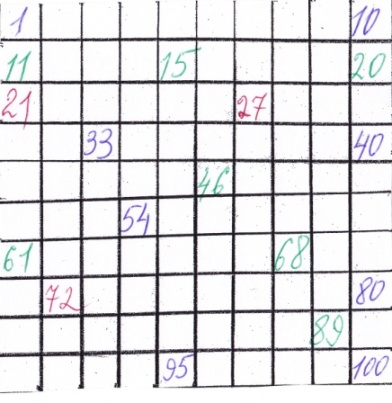 1 10
11 15 20
21 27
33 40
46
54
61 68
72 80
89
95 100